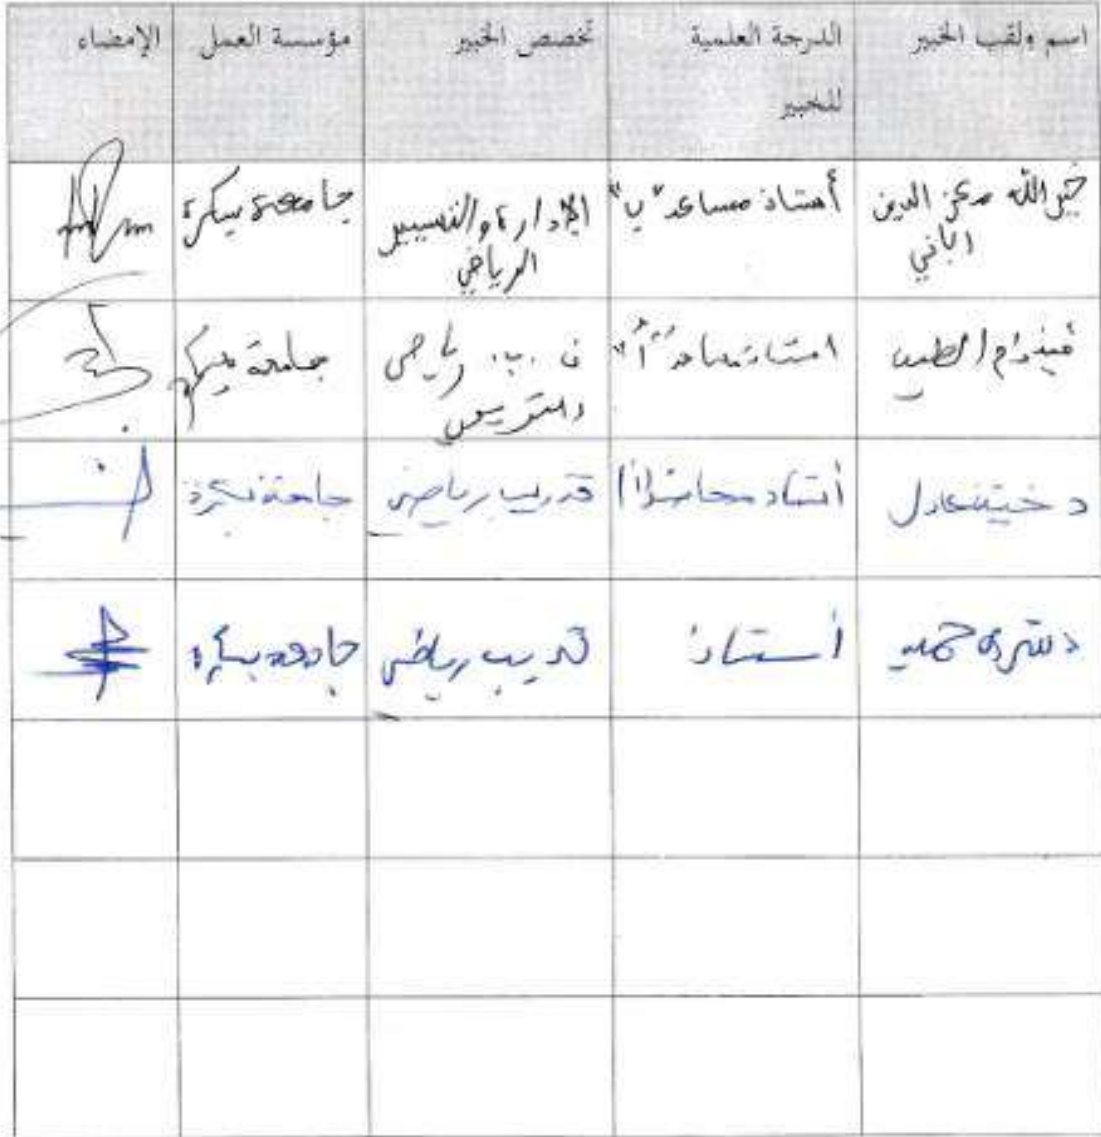 اسم ولقب الخبير
الدرجة العلمية للخبير
تخصص الخبير
مؤسسة العمل
الإمضاء
خير الله معز الدين
أستاذ مساعد "ب"
الإدارة والتسيير الرياضي
جامعة بسكرة
الطيب
استاذ مساعد "أ"
ن. ب. رياضي
جامعة بسكرة
عادل
أستاذ محاضر أ
تدريب رياضي
جامعة بسكرة
أستاذ
تدريب رياضي
جامعة بسكرة